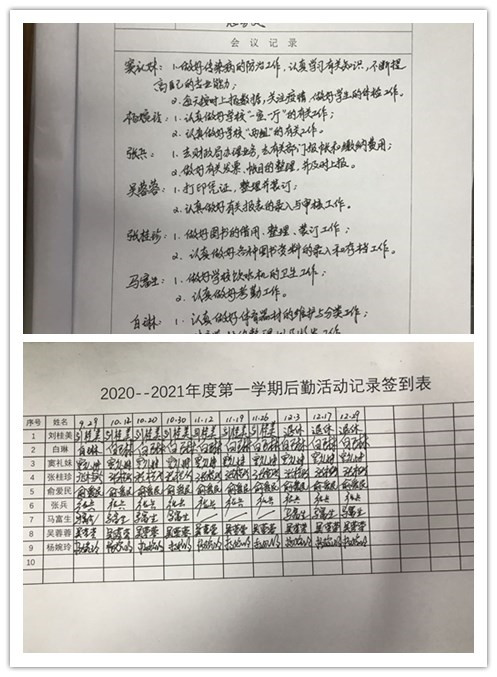 会议记录
窦礼妹：1.做好传染病的防治工作，认真学习有关知识，不断提
高自己的专业能力；
2.每天按时上报数据，关注疫情，做好学生的体检工作。
杨婉玲：1.认真做好学校“一室一厅”的有关工作；
2.认真做好学校“两组”的有关工作。
张兵：1.去财政局办理业务，去有关部门报帐和缴纳费用；
2.做好有关发票、帐目的整理，并及时上报。
吴蓉蓉：1.打印凭证，整理并装订；
2.认真做好有关报表的录入与审核工作。
张桂珍：1.做好图书的借用、整理、装订工作；
2.认真做好各种图书资料的录入和存档工作。
马富生：1.做好学校饮水机的卫生工作；
2.认真做好考勤工作。
白琳：1.认真做好体育器材的维护与分类工作；
2020--2021年度第一学期后勤活动记录签到表
序号 姓名 9.29 10.12 10.20 10.30 11.12 11.19 11.26 12.3 12.17 12.29
1 刘桂美 刘桂美 刘桂美 刘桂美 刘桂美 刘桂美 刘桂美 刘桂美 退休 退休 退休
2 白琳 白琳 白琳 白琳 白琳 白琳 白琳 白琳 白琳 白琳 白琳
3 窦礼妹
4 张桂珍
5 俞爱民 俞爱民 俞爱民 俞爱民 俞爱民 俞爱民 俞爱民 俞爱民 俞爱民 俞爱民 俞爱民
6 张兵 张兵 张兵 张兵 张兵 张兵 张兵 张兵 张兵 张兵 张兵
7 马富生 马富生 马富生 马富生 马富生 马富生 马富生 马富生 马富生
8 吴蓉蓉 吴蓉蓉 吴蓉蓉 吴蓉蓉 吴蓉蓉 吴蓉蓉 吴蓉蓉 吴蓉蓉 吴蓉蓉 吴蓉蓉 吴蓉蓉
9 杨婉玲 杨婉玲 杨婉玲 杨婉玲 杨婉玲 杨婉玲 杨婉玲 杨婉玲 杨婉玲 杨婉玲 杨婉玲
10